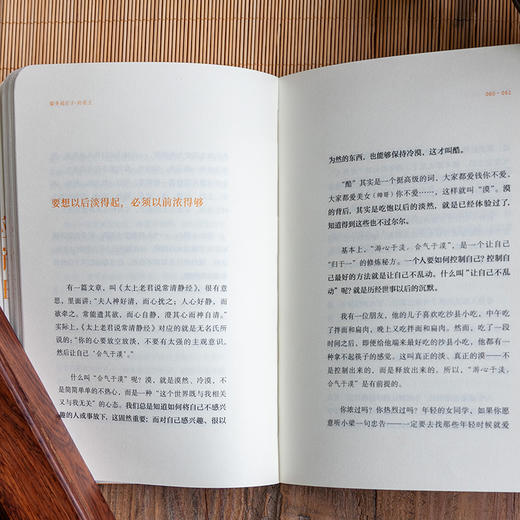 梁冬说庄子·应帝王
要想以后淡得起，必须以前浓得够
有一篇文章，叫《太上老君说常清静经》，很有意
思，里面讲：“夫人神好清，而心扰之；人心好静，而
欲牵之。常能遣其欲，而心自静，澄其心而神自清。”
实际上，《太上老君说常清静经》对应的就是无名氏所
说的：“你的心要放空放淡，不要有太强的主观意识。
然后让自己‘合气于漠’。”
什么叫“合气于漠”呢？漠，就是漠然、冷漠，不
是简简单单的不热心，而是一种“这个世界既与我相关
又与我无关”的心态。我们总是知道如何将自己不感兴
趣的人或事放下，这固然重要；而对自己感兴趣、很以
060 - 061
为然的东西，也能够保持冷漠，这才叫酷。
“酷”其实是一个挺高级的词，大家都爱钱你不爱，
大家都爱美女（帅哥）你不爱……，这样就叫“漠”。漠
的背后，其实是吃饱以后的淡然，就是已经体验过了，
知道得到这些也不过尔尔。
基本上，“游心于淡，合气于漠”，是一个让自己
“归于一”的修炼秘方。一个人要如何控制自己？控制自
己最好的方法就是让自己不乱动。什么叫“让自己不乱
动”呢？就是历经世事以后的沉默。
我有一位朋友，他的儿子喜欢吃沙县小吃，中午吃
了拌面和扁肉，晚上又吃拌面和扁肉。然而，吃了一段
时间之后，即便给他端来最好吃的沙县小吃，他都有一
种拿不起筷子的感觉。这叫真正的淡、真正的漠——不
是控制出来的，而是释放出来的。所以，“游心于淡，
合气于漠”是有前提的。
你浓过吗？你热烈过吗？年轻的女同学，如果你愿
意听小梁一句忠告——一定要去找那些年轻时候就爱